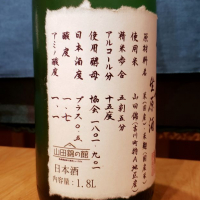 生原酒
原材料名 米(国産)・米麹(国産米)
使用米 山田錦(吉川町特A地区産)
精米歩合 五割五分
アルコール分 十五度
使用酵母 協会一八〇一 九〇一
日本酒度 プラス〇.五
酸度 一.七
アミノ酸度 一.一
山田錦の館
日本酒
内容量:1.8L